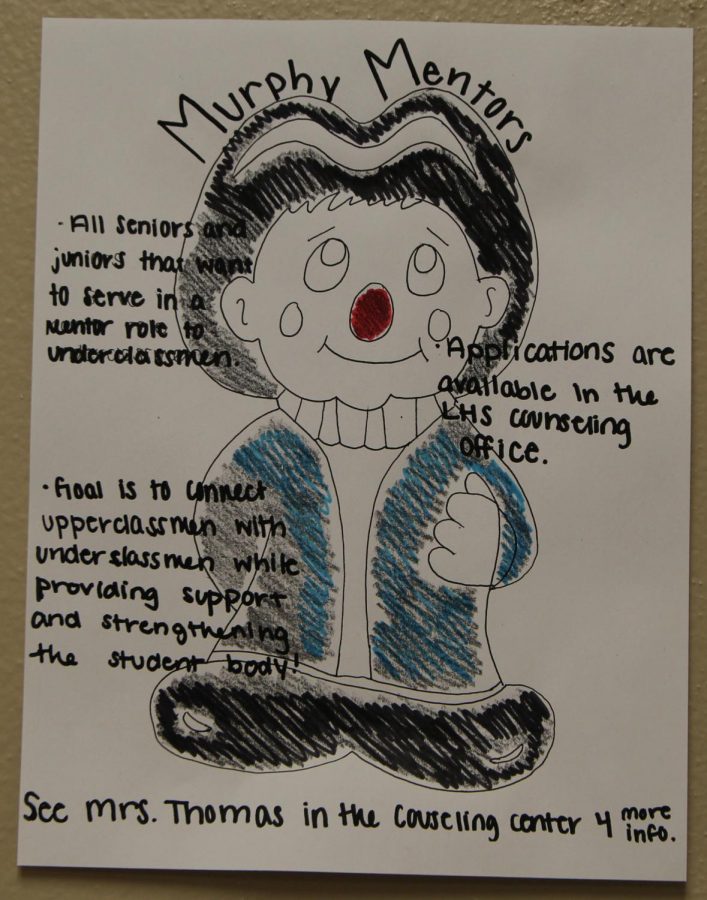 Murphy Mentors
· All seniors and
juniors that want
to serve in a
mentor role to
underclassmen.
· Applications are
available in the
LHS counseling
office.
· Goal is to connect
upperclassmen with
underslassmen while
providing support
and strengthening
the student body!
See Mrs. Thomas in the Couseling center 4 more
info.